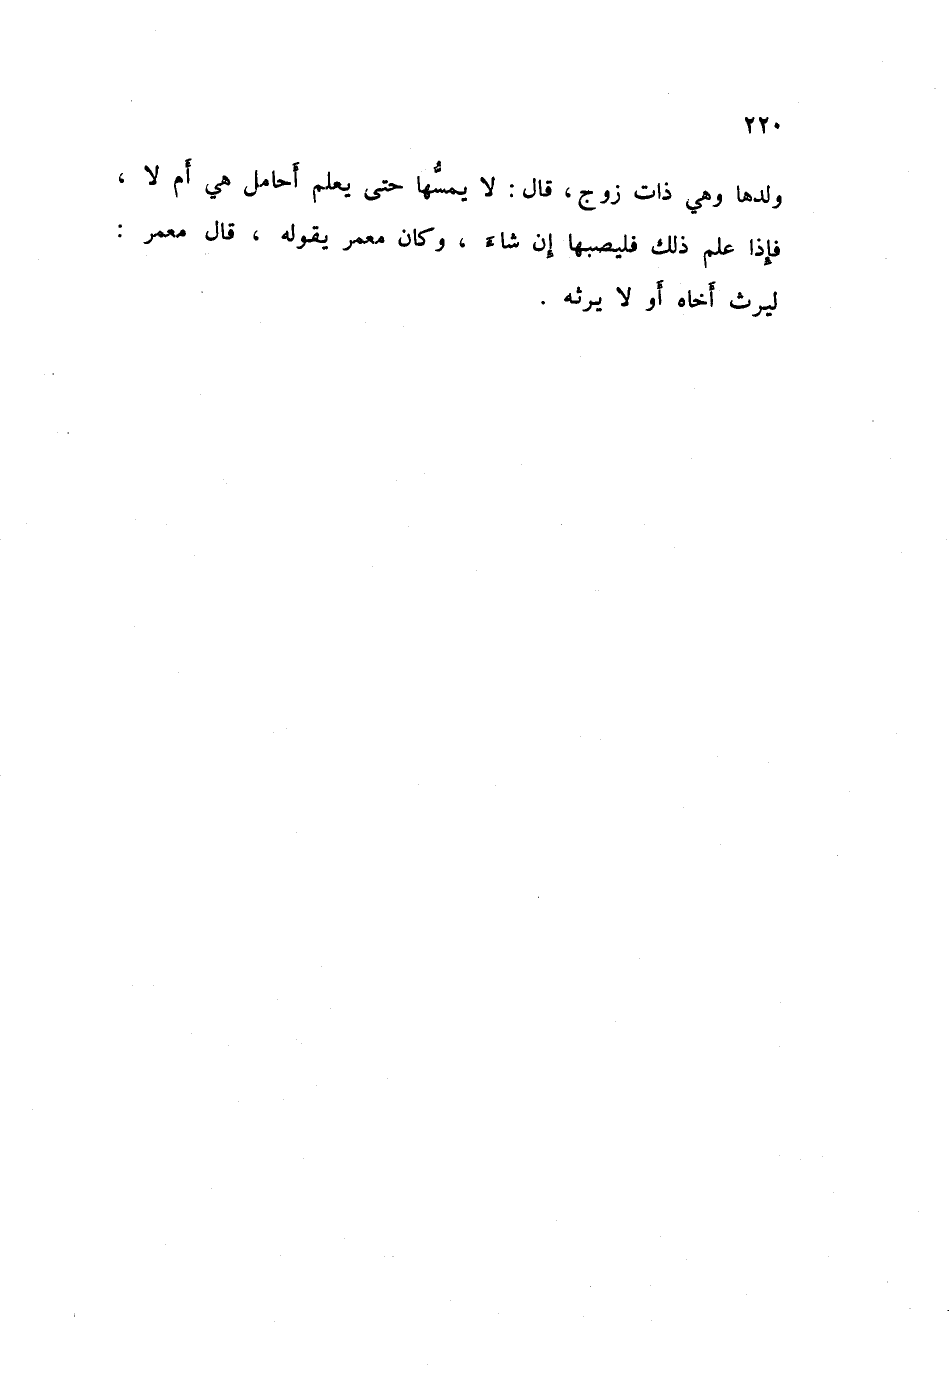 ٢٢٠
ولدها وهي ذات زوج ، قال : لا يمسُّها حتى يعلم أَحامل هي أَم لا ،
فإِذا علم ذلك فليصبها إِن شاءَ ، وكان معمر يقوله ، قال معمر :
ليرث أَخاه أَو لا يرثه .